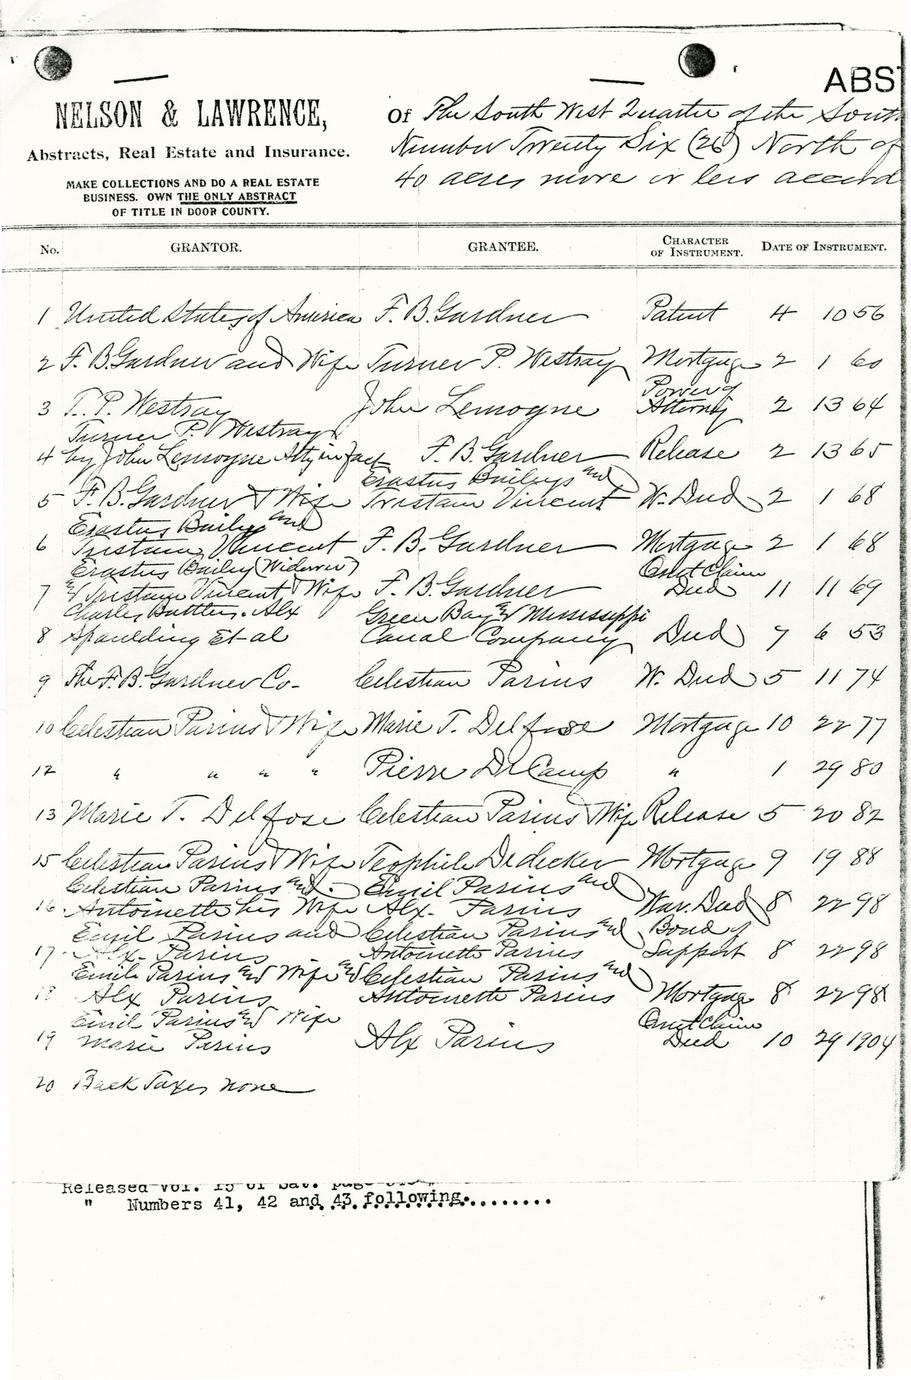 ABST
NELSON & LAWRENCE,
Abstracts, Real Estate and Insurance.
MAKE COLLECTIONS AND DO A REAL ESTATE
BUSINESS. OWN THE ONLY ABSTRACT
OF TITLE IN DOOR COUNTY.
Of The South West Quarter of the South
Number Twenty Six (26) North of
40 acres more or less accord
No. GRANTOR. GRANTEE. CHARACTER OF INSTRUMENT. DATE OF INSTRUMENT.
1 United States of America F. B. Gardner Patent 4 10 56
2 F. B. Gardner and Wife Turner P. Westray Mortgage 2 1 60
3 T. P. Westray John Lemoyne Power of Attorney 2 13 64
Turner P. Westray
4 by John Lemoyne Atty in fact F. B. Gardner Release 2 13 65
Erastus Baileys and
5 F. B. Gardner & Wife Tristam Vincent W. Deed 2 1 68
Erastus Bailey and
6 Tristam Vincent F. B. Gardner Mortgage 2 1 68
Erastus Bailey (Widower) Quit Claim
7 & Tristam Vincent & Wife F. B. Gardner Deed 11 11 69
Charles Buttler. Alx Green Bay & Mississippi
8 Spaulding Et al Canal Company Deed 7 6 53
9 The F. B. Gardner Co. Celestian Parius W. Deed 5 11 74
10 Celestian Parius & Wife Marie T. Delfose Mortgage 10 22 77
12 " " " " Pierre DeCamp " 1 29 80
13 Marie T. Delfose Celestian Parius & Wife Release 5 20 82
15 Celestian Parius & Wife Teophile Dedecker Mortgage 9 19 88
Celestian Parius and Emil Parius and
16 Antoinette his Wife Alx. Parius War. Deed 8 22 98
Emil Parius and Celestian Parius and Bond of
17 Alx. Parius Antoinette Parius Support 8 22 98
Emil Parius and Wife and Celestian Parius and
18 Alx Parius Antoinette Parius Mortgage 8 22 98
Emil Parius and Wife Quit Claim
19 Marie Parius Alx Parius Deed 10 29 1904
20 Back Taxes none
Released Vol. 15 of Sat. page
" Numbers 41, 42 and 43 following.